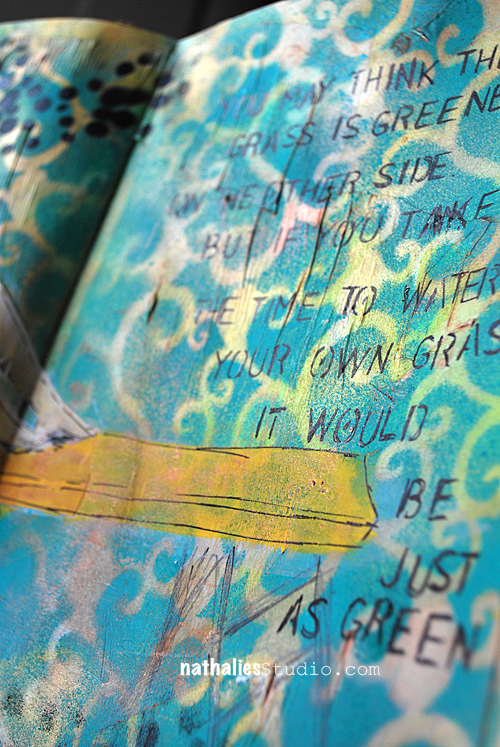 YOU MAY THINK THE
GRASS IS GREENE
ON THE OTHER SIDE
BUT IF YOU TAKE
THE TIME TO WATER
YOUR OWN GRAS
IT WOULD
BE
JUST
AS GREEN
nathaliesstudio.com